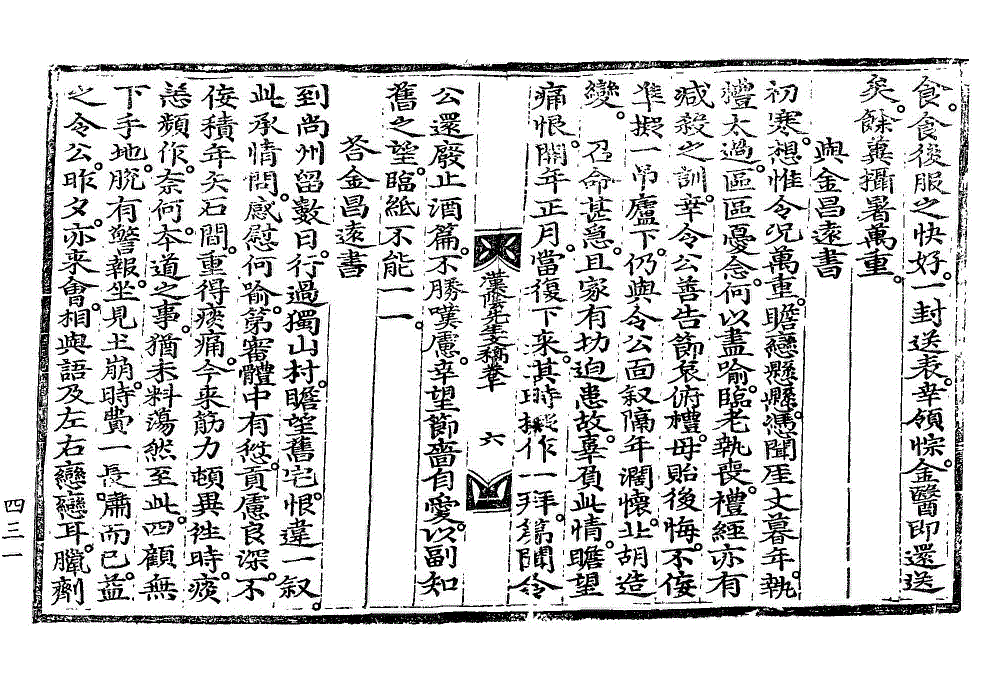 食。食後服之快好。一封送表。幸領悰。金醫即還送
矣。餘冀攝暑萬重。
與金昌遠書
初寒。想惟令况萬重。瞻戀懸懸。憑聞厓丈暮年執
禮太過。區區憂念。何以盡喻。臨老執喪。禮經亦有
减殺之訓。幸令公善告節哀俯禮。毋貽後悔。不侫
准擬一吊廬下。仍與令公面叙隔年濶懷。北胡造
變。 召命甚急。且家有切迫患故。辜負此情。瞻望
痛恨。開年正月。當復下來。其時拚作一拜。第聞令
漢陰先生文稿卷十
六
公還廢止酒篇。不勝嘆慮。幸望節嗇自愛。以副知
舊之望。臨紙不能一一。
答金昌遠書
到尚州留數日。行過獨山村。瞻望舊宅。恨違一叙。
此承情問。感慰何喻。第審體中有愆。貢慮良深。不
侫積年矢石間。重得痰痛。今來筋力頓異往時。痰
恙頻作。奈何。本道之事。猶未料蕩然至此。四顧無
下手地。脫有警報。坐見土崩。時費一長肅而已。藍
之令公。昨夕。亦來會。相與語及左右。戀戀耳。臘劑
四三一